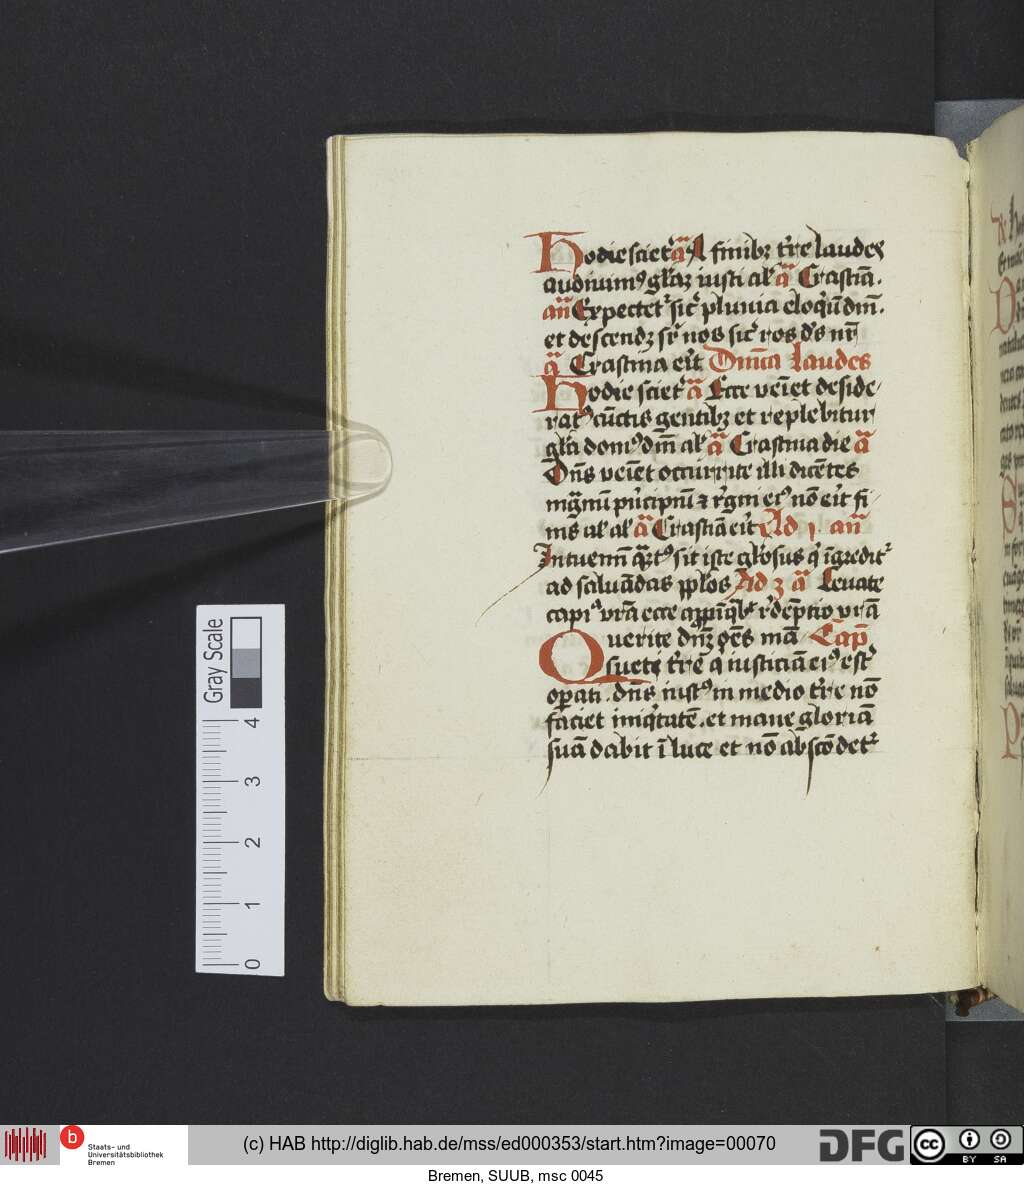 Hodie sciet᷑ a᷑ A finibꝫ t᷑re laudes
audiuimꝰ gl̄aꝫ iusti al᷑ a᷑ Crastīa.
an̄ Expectet᷑ sic᷑ pluuia eloqūdn̄i.
et descendꝫ sr̄ nos sic᷑ ros dꝰs nr̄
a᷑ Crastina er̄it Dn̄ica Laudes
Hodie sciet᷑ a᷑ Ecce veīet deside/
ratꝰ cūctis gentibꝫ et replebitur
gl̄ia domꝰ dn̄i al᷑ a᷑ Crastina die a᷑
Dn̄s veīet occurrite illi dicētes
mḡnū pn̄cipiū ⁊ r̄gni eiꝰ nō er̄it fi/
nis al᷑ al᷑ a᷑ Crastīa er̄it Ad ı an̄
Intuemī qn̄tꝰ sit iste gl̄osus q̄ īgredit᷑
ad saluādas pp̄los Ad ꝫ a᷑ Leuate
capi᷑ vr̄a ecce app̄īq̄t r̄dēptio vr̄a
Querite dn̄ꝫ oēs mā Cap̄
sueti t᷑re q̄ iusticiā eiꝰ est᷑
oꝑati . dn̄s iustꝰ in medio t᷑re nō
faciet iniq̄tatē . et mane gloriā
suā dabit ī luce et nō ābscōdet᷑
Gray Scale
4
3
2
1
0
b
Staats- und
Universitätsbibliothek
Bremen
(c) HAB http://diglib.hab.de/mss/ed000353/start.htm?image=00070
DFG
cc
BY SA
Bremen, SUUB, msc 0045